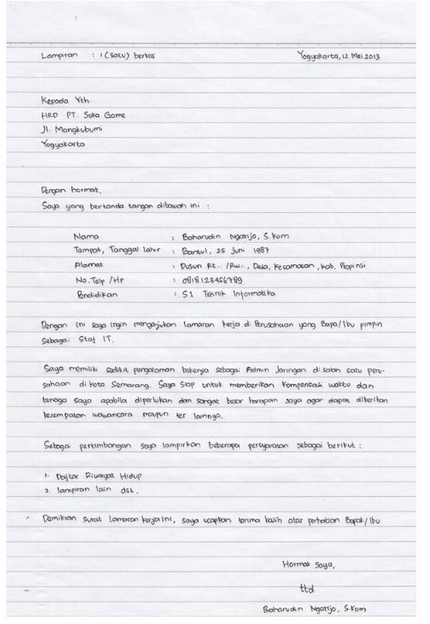 Lampiran : 1 (Satu) berkas
Yogyakarta, 12 Mei 2013
Kepada Yth.
HRD PT. Suka Game
Jl. Mangkubumi
Yogyakarta
Dengan hormat,
Saya yang bertanda tangan dibawah ini :
Nama : Baharudin Ngatijo, S.Kom
Tempat, Tanggal lahir : Bantul, 25 Juni 1987
Alamat : Dusun Rt.. /Rw.., Desa, Kecamatan, Kab. Propinsi
No. Telp /Hp : 0818123456789
Pendidikan : S1 Teknik Informatika
Dengan ini saya ingin mengajukan lamaran kerja di Perusahaan yang Bapa/Ibu pimpin
Sebagai Staf IT.
Saya memiliki sedikit pengalaman bekerja sebagai Admin Jaringan di salah satu peru-
sahaan di kota Semarang. Saya siap untuk memberikan kompensasi waktu dan
tenaga saya apabila diperlukan dan sangat besar harapan saya agar dapat diberikan
kesempatan wawancara maupun tes lainnya.
Sebagai pertimbangan saya lampirkan beberapa persyaratan sebagai berikut :
1. Daftar Riwayat Hidup
2. lampiran lain dst.
Demikian surat lamaran kerja ini, saya ucapkan terima kasih atas perhatian Bapak/Ibu
Hormat Saya,
ttd
Baharudin Ngatijo, S.Kom